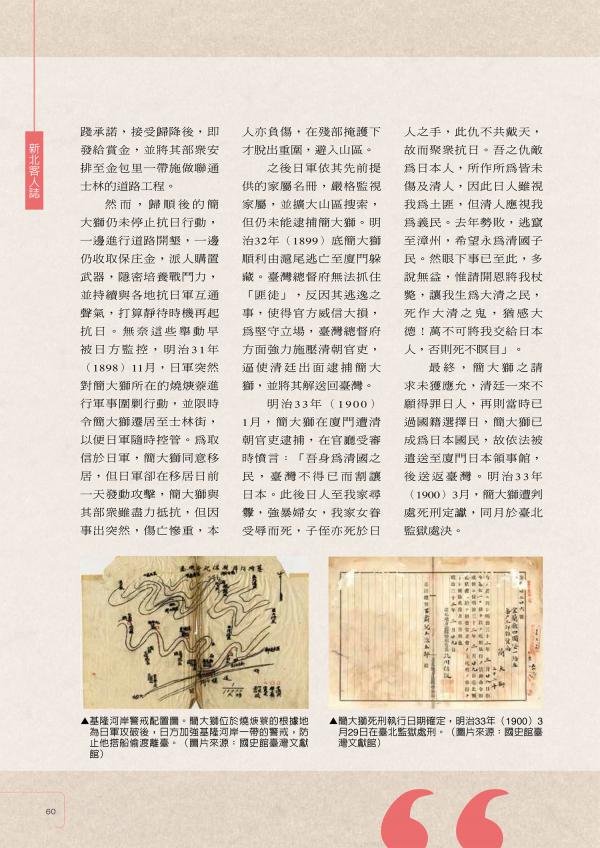 新北客人誌
踐承諾，接受歸降後，即
發給賞金，並將其部衆安
排至金包里一帶施做聯通
士林的道路工程。
然而，歸順後的簡
大獅仍未停止抗日行動，
一邊進行道路開墾，一邊
仍收取保庄金，派人購置
武器，隱密培養戰鬥力，
並持續與各地抗日軍互通
聲氣，打算靜待時機再起
抗日。無奈這些舉動早
被日方監控，明治31年
（1898）11月，日軍突然
對簡大獅所在的燒焿寮進
行軍事圍剿行動，並限時
令簡大獅遷居至士林街，
以便日軍隨時控管。爲取
信於日軍，簡大獅同意移
居，但日軍卻在移居日前
一天發動攻擊，簡大獅與
其部衆雖盡力抵抗，但因
事出突然，傷亡慘重，本
人亦負傷，在殘部掩護下
才脫出重圍，避入山區。
之後日軍依其先前提
供的家屬名冊，嚴格監視
家屬，並擴大山區搜索，
但仍未能逮捕簡大獅。明
治32年（1899）底簡大獅
順利由滬尾逃亡至廈門躲
藏。臺灣總督府無法抓住
「匪徒」，反因其逃逸之
事，使得官方威信大損，
爲堅守立場，臺灣總督府
方面強力施壓清朝官吏，
逼使清廷出面逮捕簡大
獅，並將其解送回臺灣。
明治33年（1900）
1月，簡大獅在廈門遭清
朝官吏逮捕，在官廳受審
時憤言：「吾身爲清國之
民，臺灣不得已而割讓
日本。此後日人至我家尋
釁，強暴婦女，我家女眷
受辱而死，子侄亦死於日
人之手，此仇不共戴天，
故而聚衆抗日。吾之仇敵
爲日本人，所作所爲皆未
傷及清人，因此日人雖視
我爲土匪，但清人應視我
爲義民。去年勢敗，逃竄
至漳州，希望永爲清國子
民。然眼下事已至此，多
說無益，惟請開恩將我杖
斃，讓我生爲大清之民，
死作大清之鬼，猶感大
德！萬不可將我交給日本
人，否則死不瞑目」。
最終，簡大獅之請
求未獲應允，清廷一來不
願得罪日人，再則當時已
過國籍選擇日，簡大獅已
成爲日本國民，故依法被
遣送至廈門日本領事館，
後送返臺灣。明治33年
（1900）3月，簡大獅遭判
處死刑定讞，同月於臺北
監獄處決。
▲基隆河岸警戒配置圖。簡大獅位於燒焿寮的根據地
為日軍攻破後，日方加強基隆河岸一帶的警戒，防
止他搭船偷渡離臺。（圖片來源：國史館臺灣文獻
館）
▲簡大獅死刑執行日期確定，明治33年（1900）3
月29日在臺北監獄處刑。（圖片來源：國史館臺
灣文獻館）
60